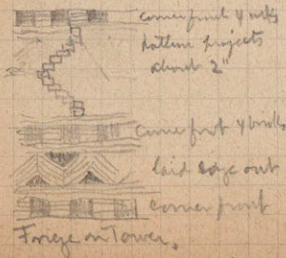 corner front 4 bricks
bottom projects
about 2"
corner front 4 bricks
laid edge out
corner front
Frieze on Tower.